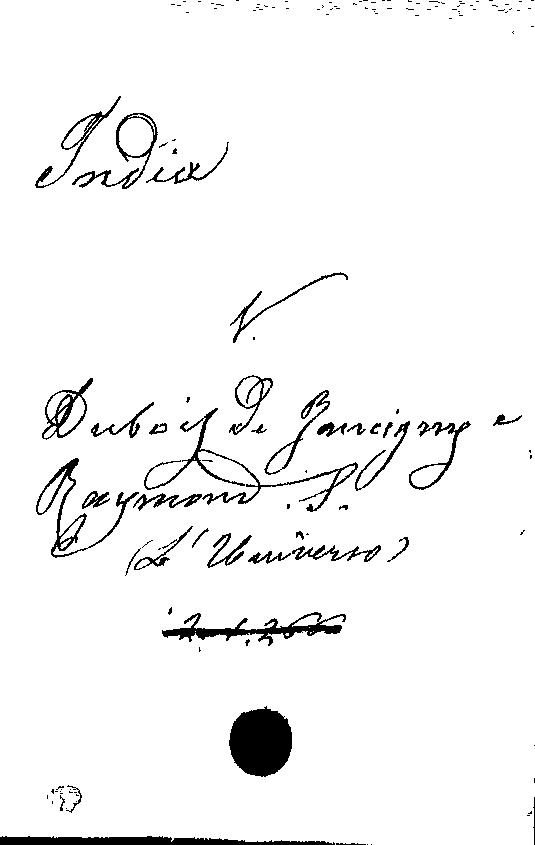 India
V.
Dubois De Jancigny e
Raymond. S.
(L'Universo)